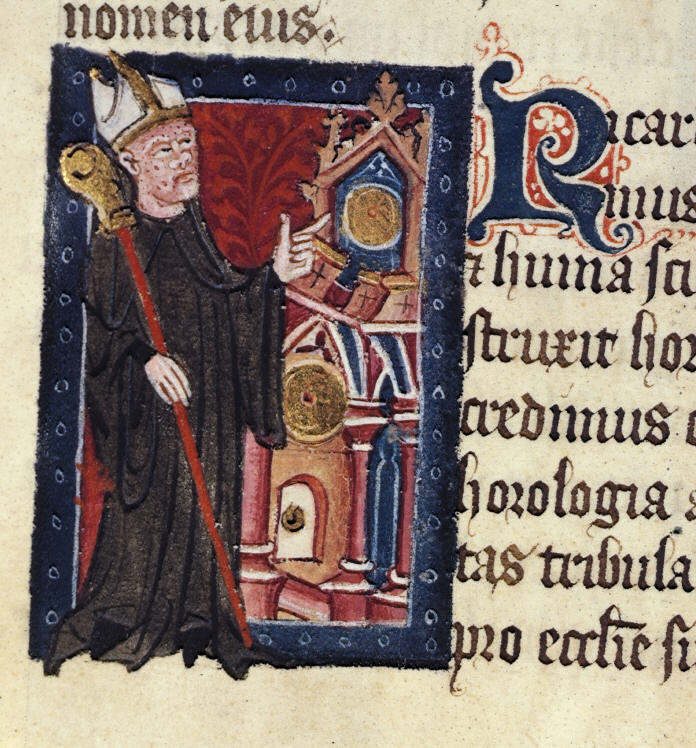 nomen eius.
Ricar
mus
& huma sci
struxit hor
credimus
horologia a
tas tribula
pro ecclie si